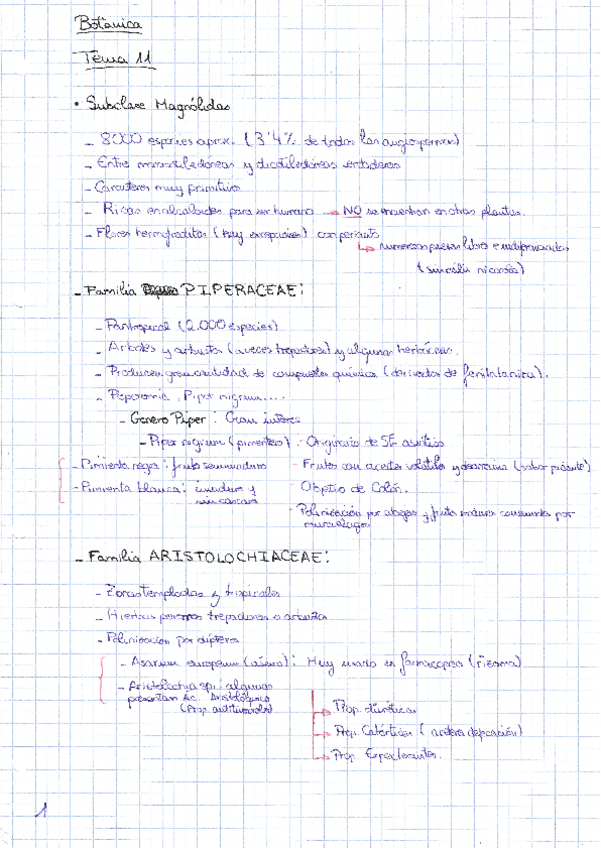 Botánica
Tema 11
• Subclase Magnólidas
- 8000 especies aprox. (3'4% de todas las angiospermas)
- Entre monocotiledóneas y dicotiledóneas verdaderas
- Caracteres muy primitivos
- Ricas en alcaloides para ser humano → NO se encuentran en otras plantas.
- Flores hermafroditas (hay excepciones) con perianto
↳ numerosas piezas libres e indiferenciadas
(sin cáliz ni corola)
- Familia PIPERACEAE:
- Pantropical (2.000 especies)
- Árboles y arbustos (a veces trepadores) y algunas herbáceas.
- Producen gran cantidad de compuestos químicos (derivados de fenilalanina).
- Peperomia, Piper nigrum....
- Género Piper: Gran interés
- Piper nigrum (pimentero) - Originario de SE asiático
- Pimienta negra: fruto seminmaduro - Frutos con aceites volátiles y (sabor picante)
- Pimienta blanca: inmaduro y - Objetivo de Colón.
sin cáscara
- Polinización por abejas y fruto maduro consumido por
murciélagos
- Familia ARISTOLOCHIACEAE:
- Zonas templadas y tropicales
- Hierbas perennes trepadoras o
- Polinización por dípteros
- Asarum europaeum (ásaro): Muy usado en farmacopea (rizoma)
- Aristolochia sp: algunas
presentan Ac. Aristolóquico
(Prop. antitumorales)
→ Prop. diuréticas
→ Prop. Catárticas (acelera defecación)
→ Prop. Expectorantes.
1